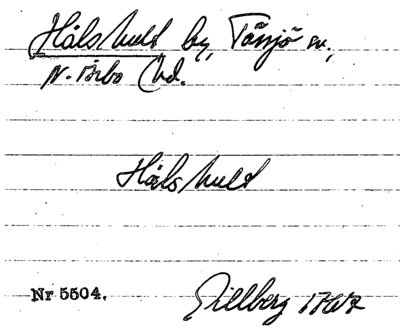 Hålshult by, Tånnö sn.,
N. Åsbo hd.
Hålshult
Nr 5504. Gillberg